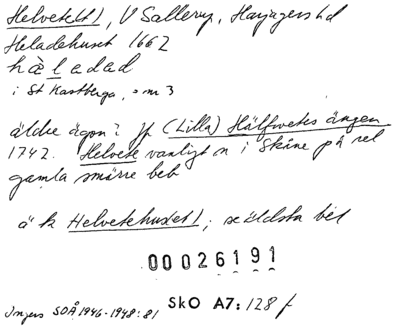 Helvetet 1, V Sallerup, Harjagers hd
Heladehuset 1662
hàladad
i St Kastberga, nr 3
äldre ägon? Jf (Lilla) Hälfwetes ängen
1742. Helvete vanligt n i Skåne på rel
gamla smärre beb
ä k Helvetehuset 1; se äldsta bel
00026191
Ingers SOÅ 1946-1948: 81 SkO A7: 128 f